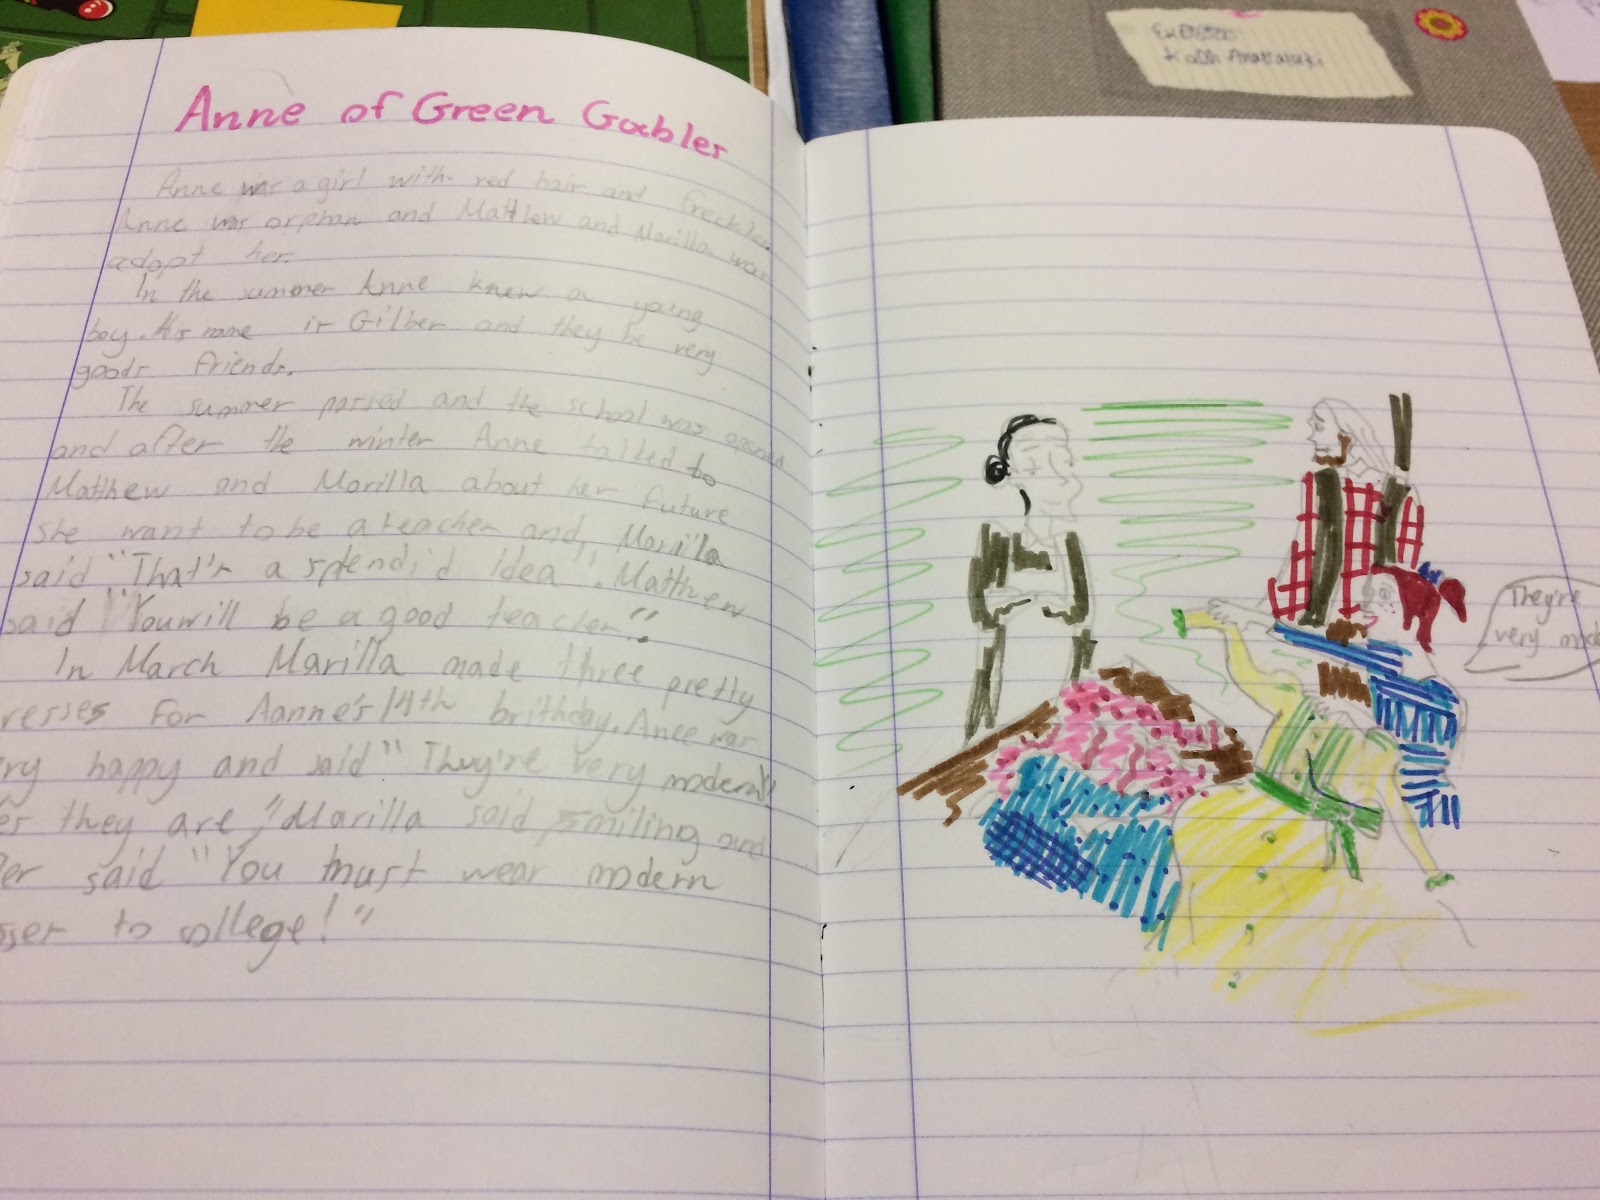 Anne of Green Gables
Anne was a girl with red hair and freckles
Anne was orphan and Matthew and Marilla was
adopt her.
In the summer Anne knew a young
boy. His name is Gilber and they be very
goods friends.
The summer passed and the school was opened
and after the winter Anne talked to
Matthew and Marilla about her future
she want to be a teacher and, Marilla
said "That's a splendid Idea". Matthew
said "You will be a good teacher".
In March Marilla made three pretty
resses for Aanne's 14th brithday. Anee was
ry happy and said "They're very modern"
es they are," Marilla said, smiling and
er said "You must wear modern
sses to college!"
They're
very mode